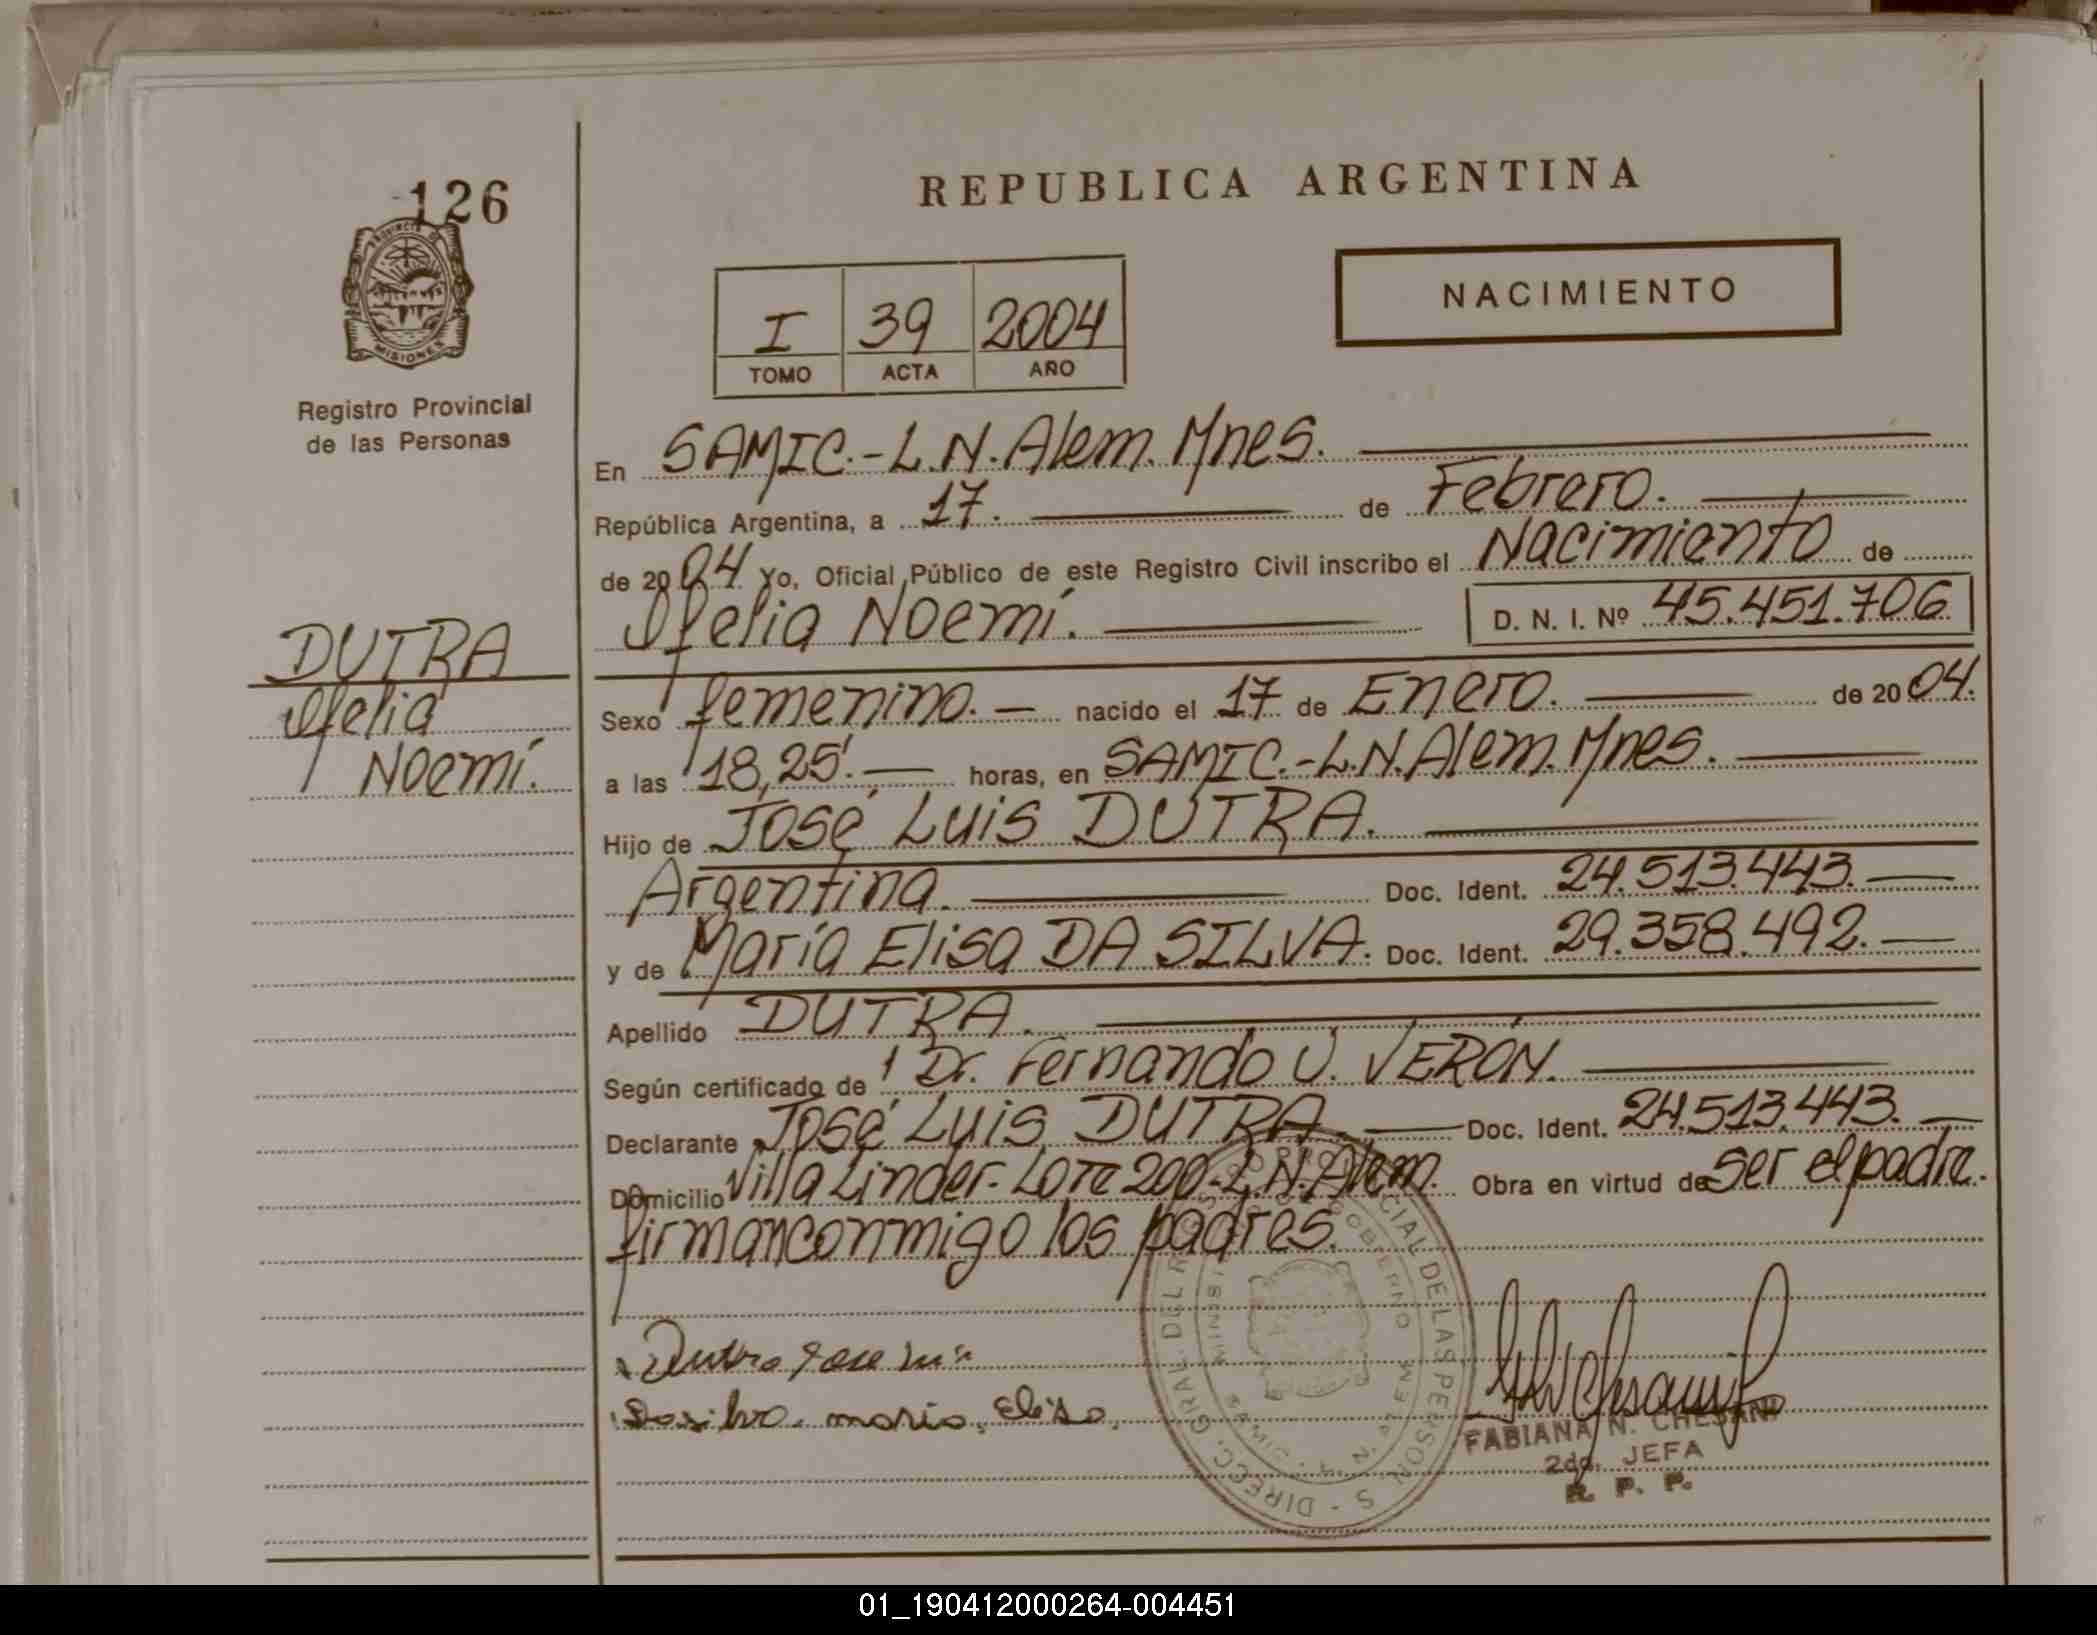 126
PROVINCIA DE
MISIONES
Registro Provincial
de las Personas
REPUBLICA ARGENTINA
I 39 2004
TOMO ACTA AÑO
NACIMIENTO
En SAMIC.-L.N.Alem.Mnes.
República Argentina, a 17. de Febrero.
de 2004 Yo, Oficial Público de este Registro Civil inscribo el Nacimiento de
Ofelia Noemí. D. N. I. Nº 45.451.706
DUTRA
Ofelia
Noemí.
Sexo femenino.- nacido el 17 de Enero. de 2004.
a las 18,25'.- horas, en SAMIC.-L.N.Alem.Mnes.
Hijo de José Luis DUTRA.
Argentina. Doc. Ident. 24.513.443.-
y de María Elisa DA SILVA. Doc. Ident. 29.358.492.-
Apellido DUTRA.
Según certificado de Dr. Fernando VERÓN.
Declarante José Luis DUTRA Doc. Ident. 24.513.443.-
Domicilio Villa Linder-Lote 200-L.N.Alem. Obra en virtud de ser el padre.
firman conmigo los padres.
Dutra Jose Luis
Dasilva maria Elisa
FABIANA N. CHESANI
2da. JEFA
R. P. P.
01_190412000264-004451